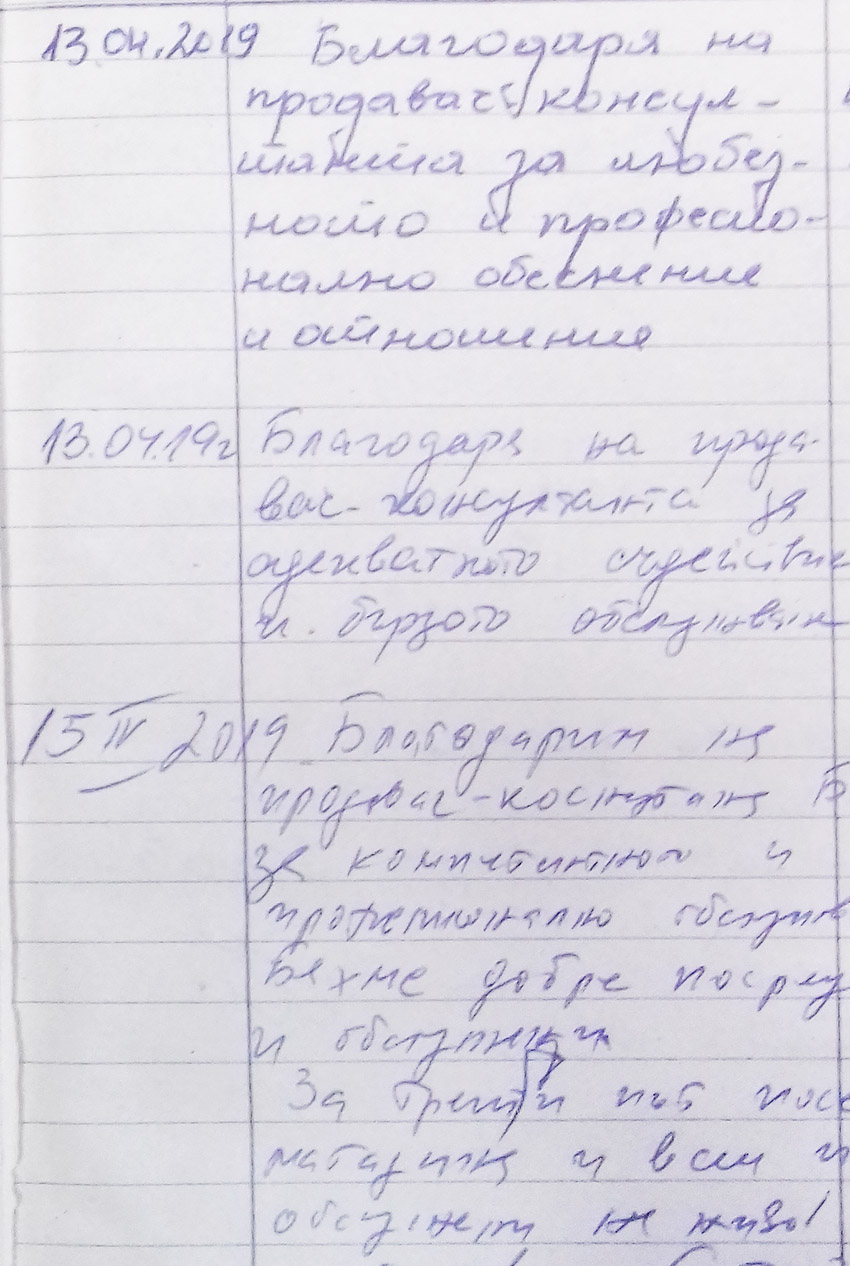 13.04.2019 Благодаря на
продавач консул-
танта за любез-
ното и професио-
нално обеснение
и отношение
13.04.19г Благодаря на прода-
вач-консултанта за
адекватното съдействие
и бързото обслужван
15 IV 2019 Благодарим на
продавач- Б
за компетентното и
професионално обслужв
Бяхме добре посрещ
и обслужени
За трети път посе
магазина и всеки
обслужени на ниво!